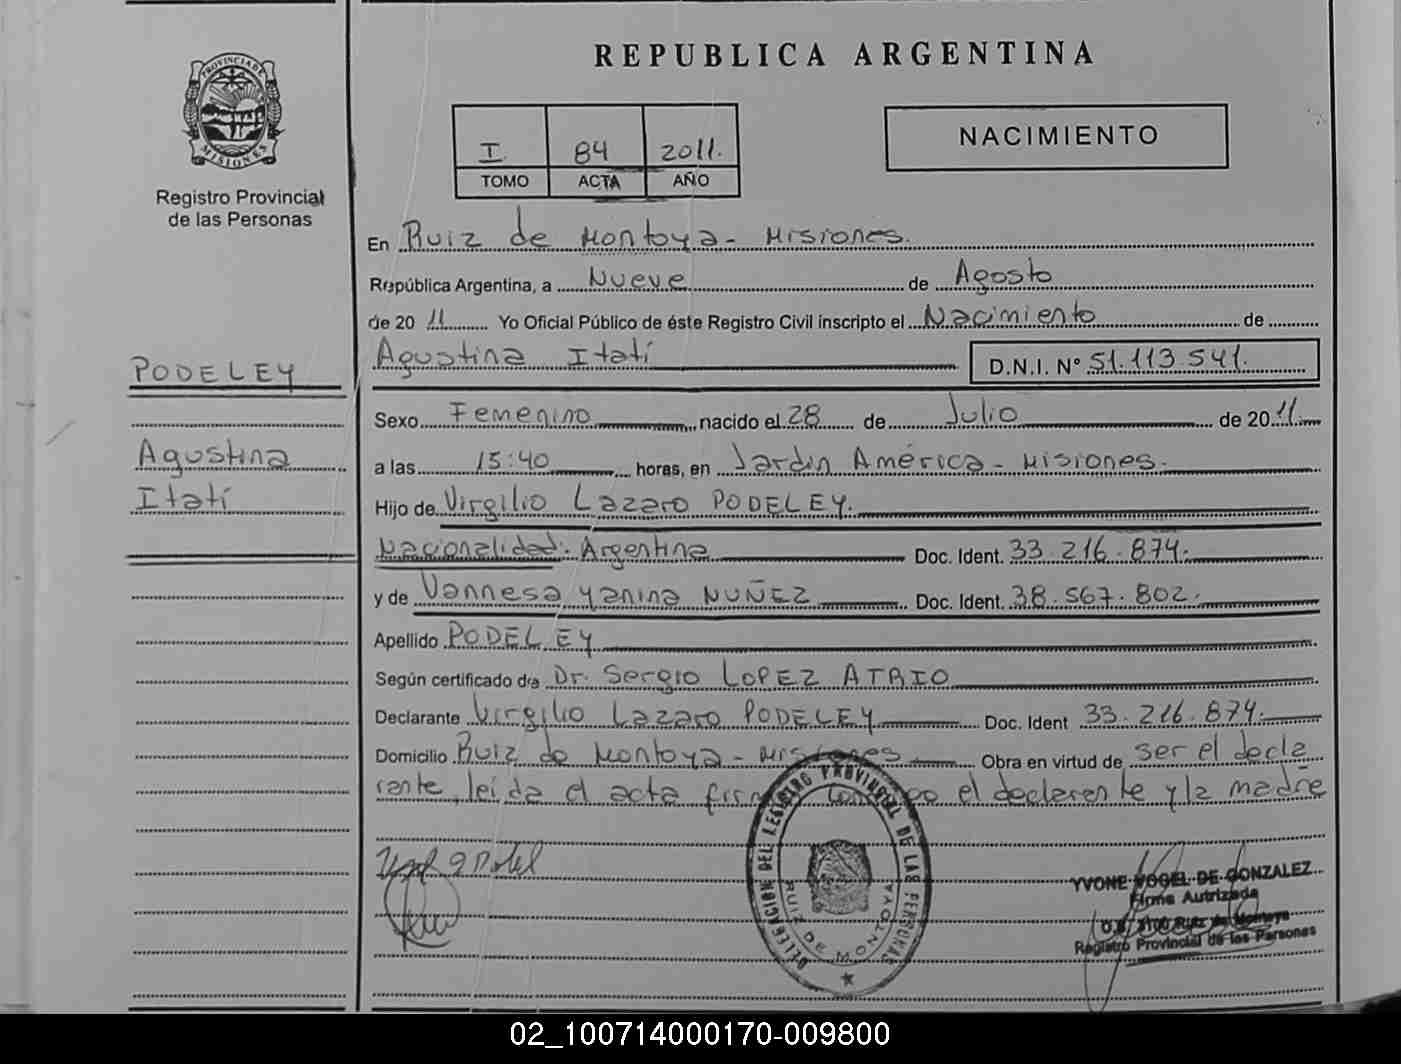 REPUBLICA ARGENTINA
PROVINCIA DE
MISIONES
Registro Provincial
de las Personas
I 84 2011.
TOMO ACTA AÑO
NACIMIENTO
En Ruiz de Montoya - Misiones.
República Argentina, a Nueve de Agosto
de 2011 Yo Oficial Público de éste Registro Civil inscripto el Nacimiento de
Agustina Itatí D.N.I. N° 51.113.541.
PODELEY
Agustina
Itatí
Sexo Femenino nacido el 28 de Julio de 2011
a las 15:40 horas, en Jardin América - Misiones.
Hijo de Virgilio Lazaro PODELEY.
Nacionalidad: Argentina Doc. Ident. 33.216.874.
y de Vannesa Yanina NUÑEZ Doc. Ident. 38.567.802.
Apellido PODELEY
Según certificado dra Dr. Sergio LOPEZ ATRIO
Declarante Virgilio Lazaro PODELEY Doc. Ident 33.216.874.
Domicilio Ruiz de Montoya - Misiones Obra en virtud de ser el decla
rante, leída el acta el declarante y la madre
DELEGACION DEL REGISTRO PROVINCIAL DE LAS PERSONAS
RUIZ DE MONTOYA
YVONE VOGEL DE GONZALEZ
Firma Autrizada
O.P. 3100 Ruiz de Montoya
Registro Provincial de las Personas
02_100714000170-009800